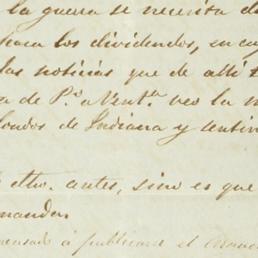 la guerra se necesita
para los dividendos, en
las noticias que de alli
de P.º a Vent.ª veo la
fondos de Indiana y
dho. antes, sino es que
mandar.
pensado á publicarse el